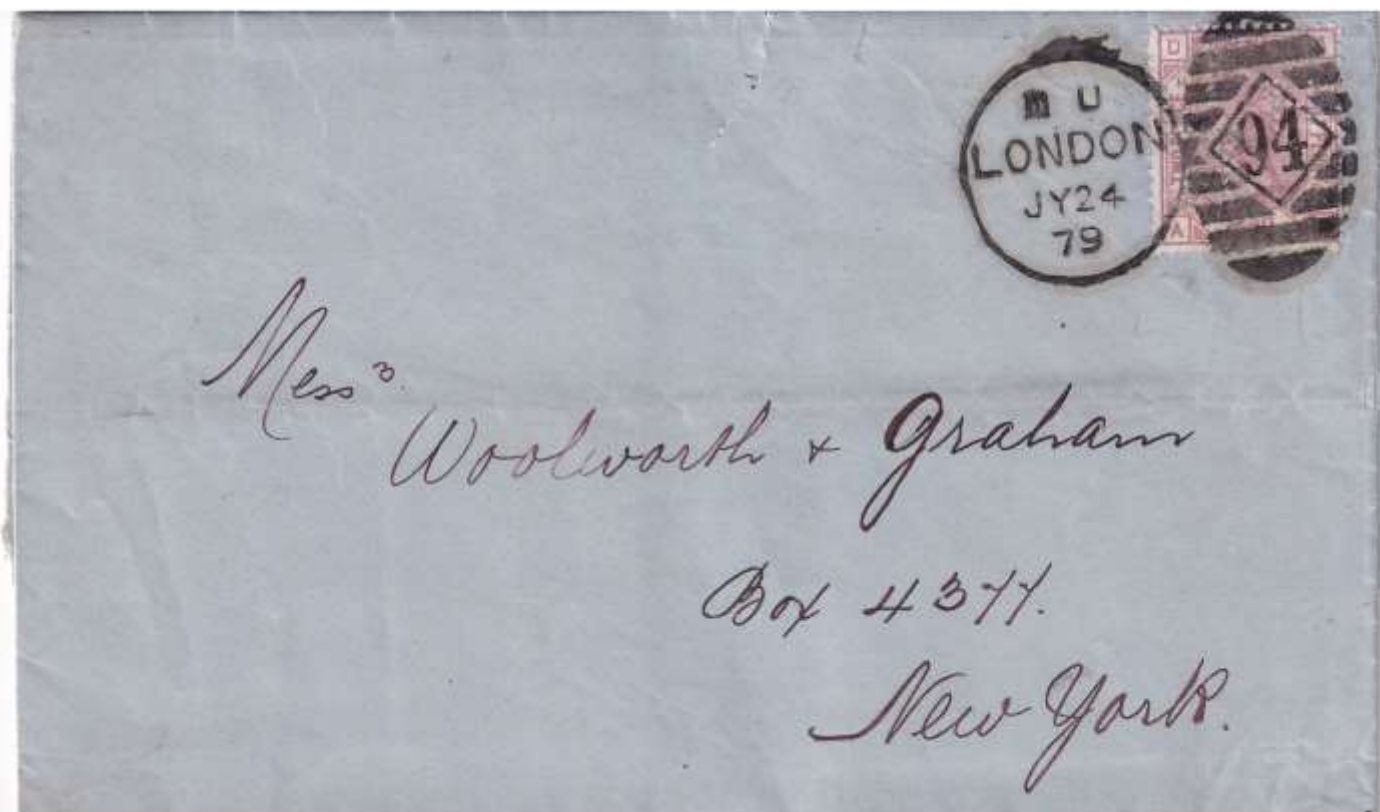 U
LONDON
JY24
79
94
D
A
Mess<sup>rs</sup>.
Woolworth & Graham
Box 4377.
New York.